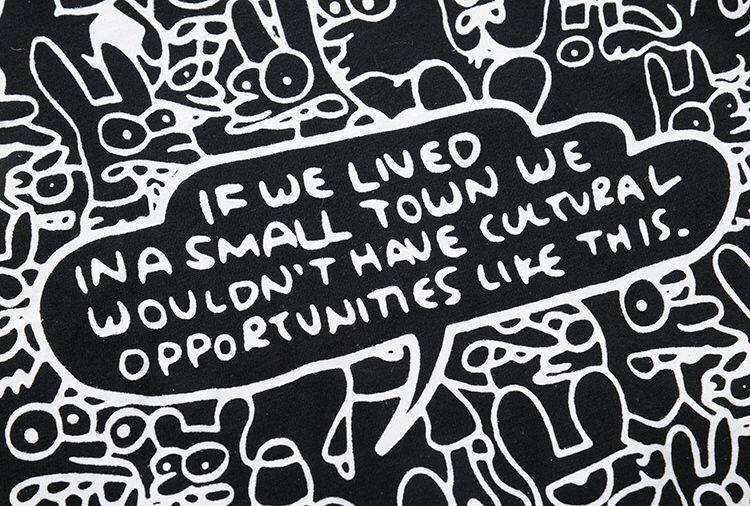 IF WE LIVED
IN A SMALL TOWN WE
WOULDN'T HAVE CULTURAL
OPPORTUNITIES LIKE THIS.